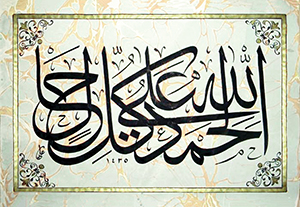 الحمد لله على كل حال
١٤٣٥